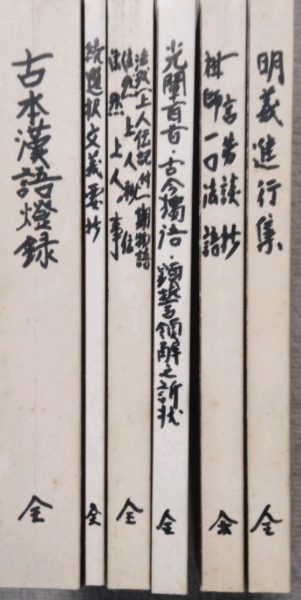 明義進行集
全
一言芳談抄
祖師一口法語
全
光闡百首・古今獨語・領解之訴状
全
法然上人伝記附一期物語
法然上人秘伝
法然上人事
全
續選択文義要抄
全
古本漢語燈録
全